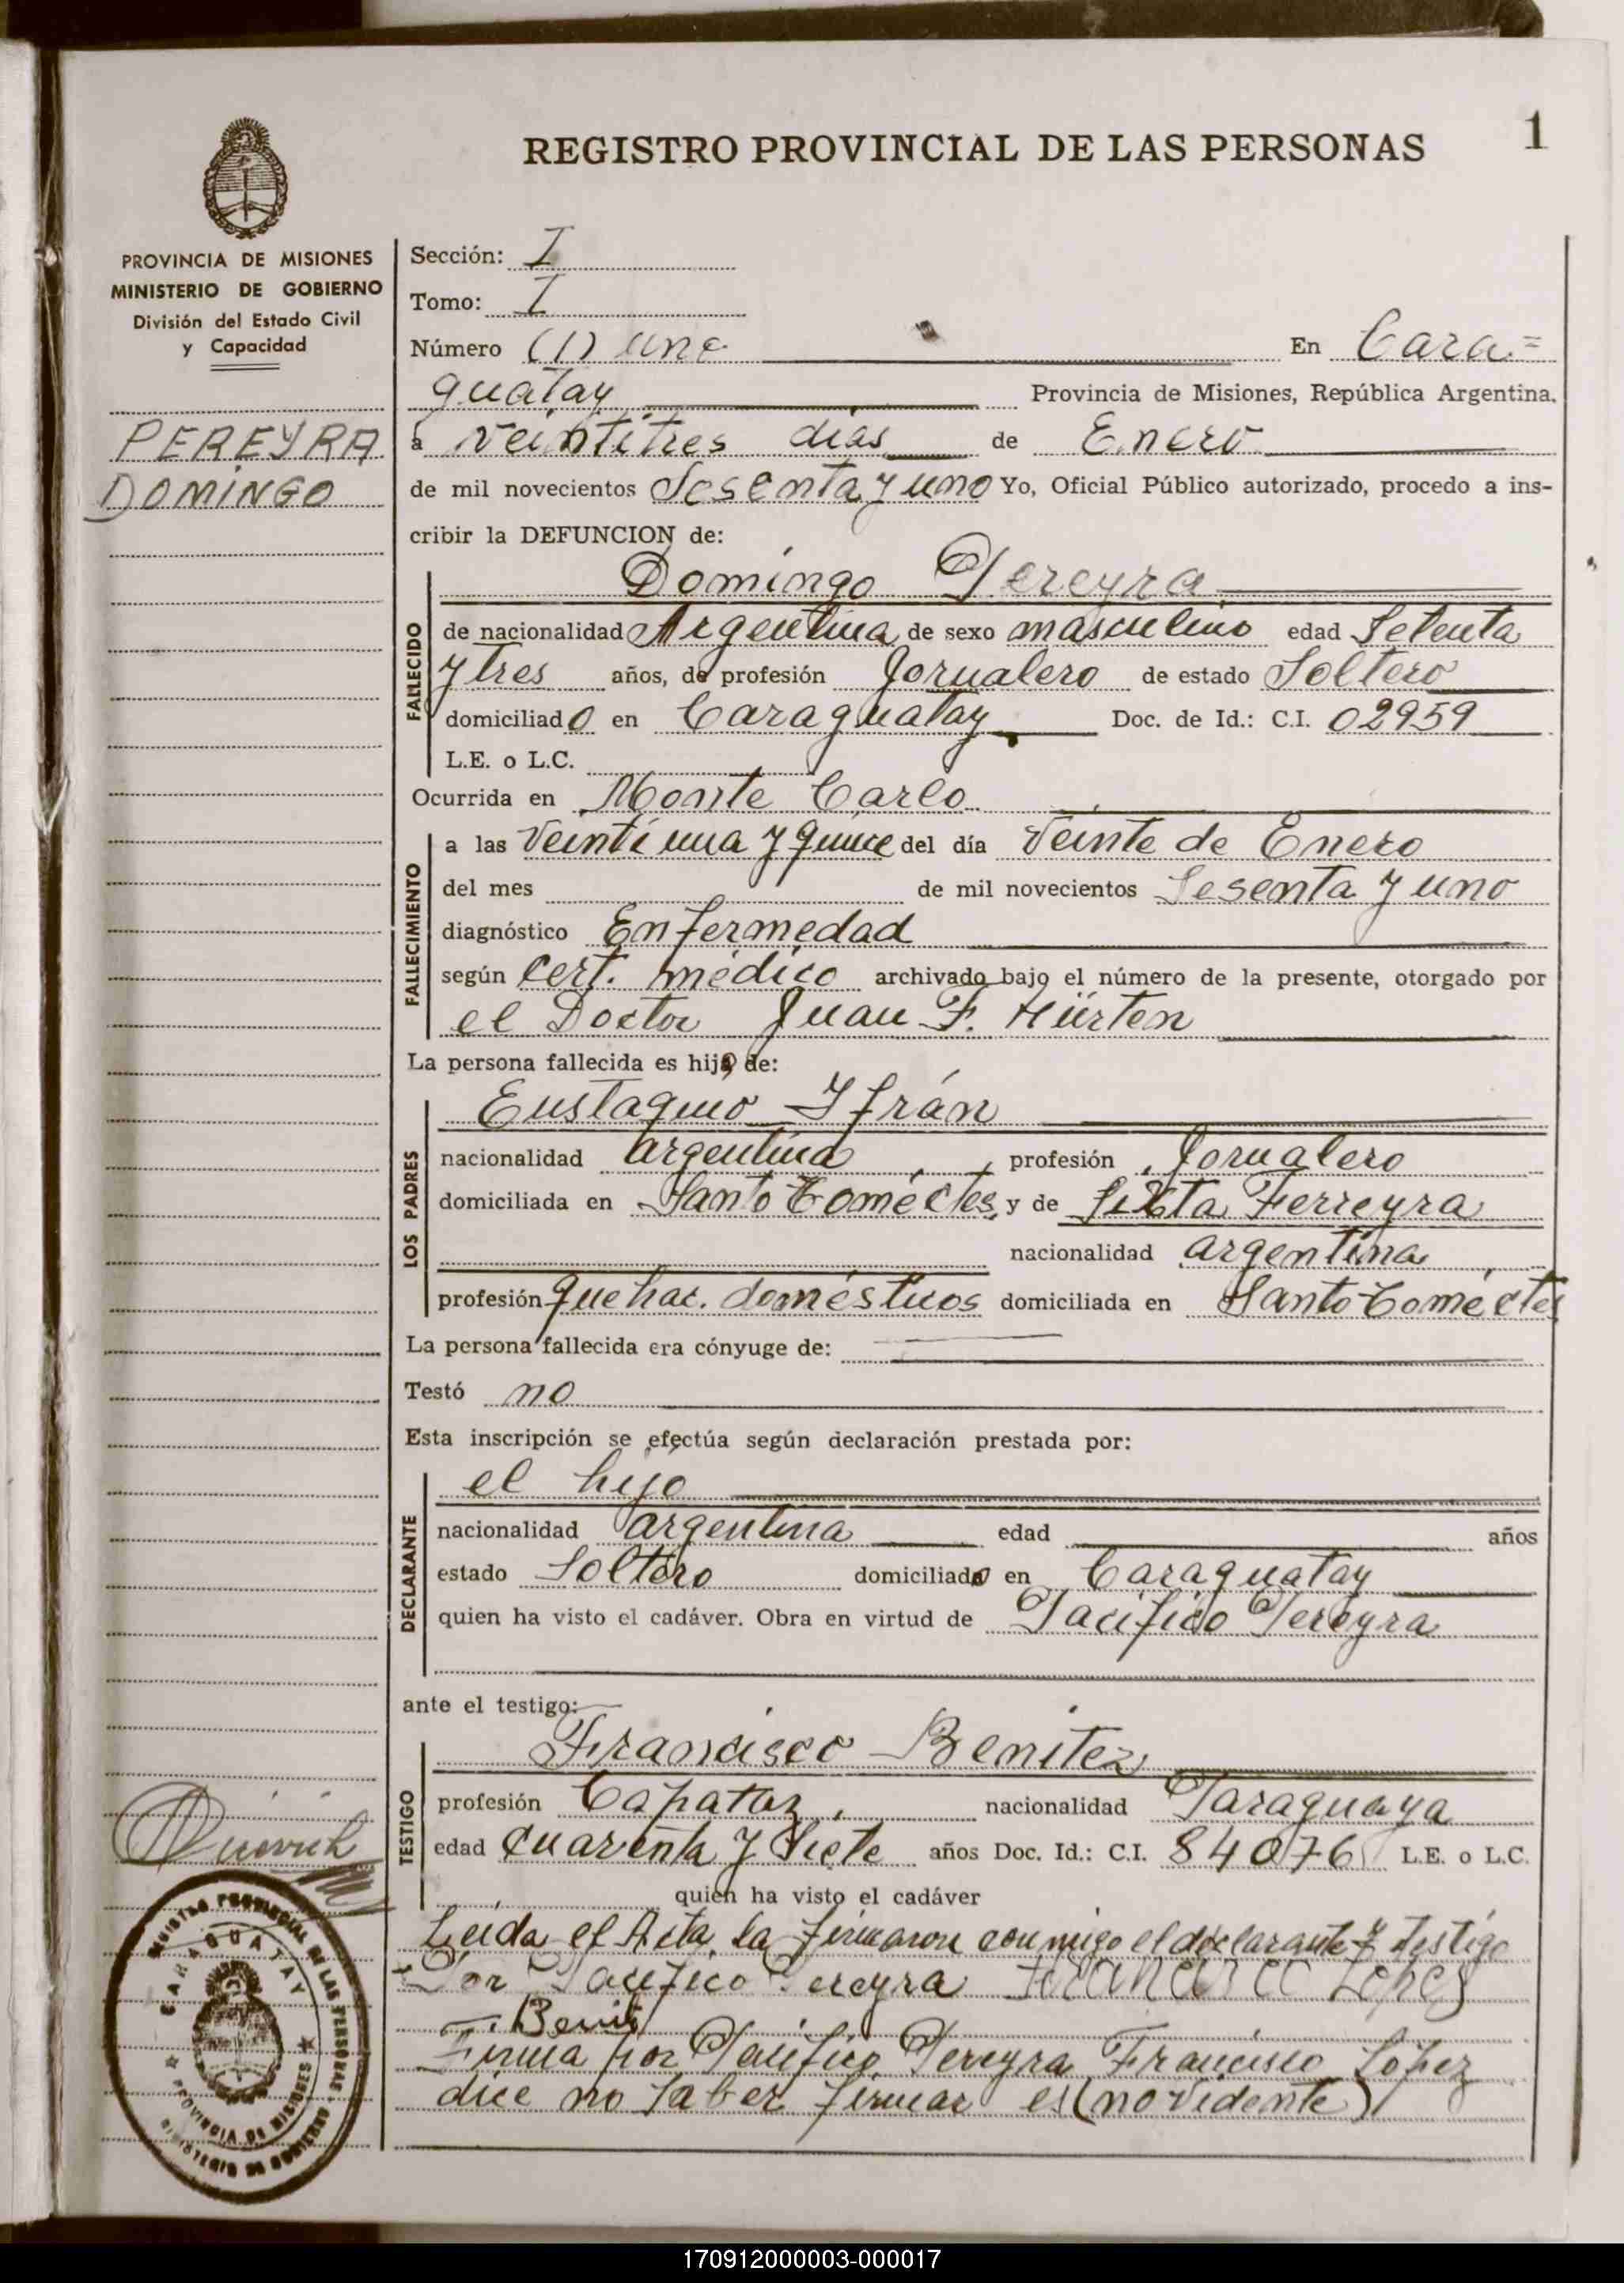 1
REGISTRO PROVINCIAL DE LAS PERSONAS
PROVINCIA DE MISIONES
MINISTERIO DE GOBIERNO
División del Estado Civil
y Capacidad
PEREYRA
DOMINGO
Sección: I
Tomo: I
Número (1) uno En Cara=
guatay Provincia de Misiones, República Argentina,
a veintitres dias de Enero
de mil novecientos Sesenta y uno Yo, Oficial Público autorizado, procedo a ins-
cribir la DEFUNCION de:
Domingo Pereyra
FALLECIDO
de nacionalidad Argentina de sexo masculino edad Setenta
y tres años, de profesión Jornalero de estado Soltero
domiciliado en Caraguatay Doc. de Id.: C.I. 02959
L.E. o L.C.
Ocurrida en Monte Carlo
FALLECIMIENTO
a las Veinti una y quince del día Veinte de Enero
del mes de mil novecientos Sesenta y uno
diagnóstico Enfermedad
según Cert. médico archivado bajo el número de la presente, otorgado por
el Doctor Juan F. Hürten
La persona fallecida es hijo de:
LOS PADRES
Eustaquio Ifrán
nacionalidad argentina profesión Jornalero
domiciliada en Santo Tomé Ctes, y de Sixta Ferreyra
nacionalidad argentina
profesión quehac. domésticos domiciliada en Santo Tomé Ctes
La persona fallecida era cónyuge de:
Testó no
Esta inscripción se efectúa según declaración prestada por:
DECLARANTE
el hijo
nacionalidad argentina edad años
estado Soltero domiciliado en Caraguatay
quien ha visto el cadáver. Obra en virtud de Pacífico Pereyra
ante el testigo:
TESTIGO
Francisco Benitez
profesión Capataz nacionalidad Paraguaya
edad cuarenta y Siete años Doc. Id.: C.I. 84076 L.E. o L.C.
quien ha visto el cadáver
Leida el Acta, la firmaron conmigo el declarante y testigo
Por Pacifico Pereyra Francisco Lopes
F. Benit
Firma por Pacifico Pereyra Francisco López
dice no saber firmar es (no vidente)
REGISTRO PROVINCIAL DE LAS PERSONAS
CARAGUATAY
PROVINCIA DE MISIONES
170912000003-000017